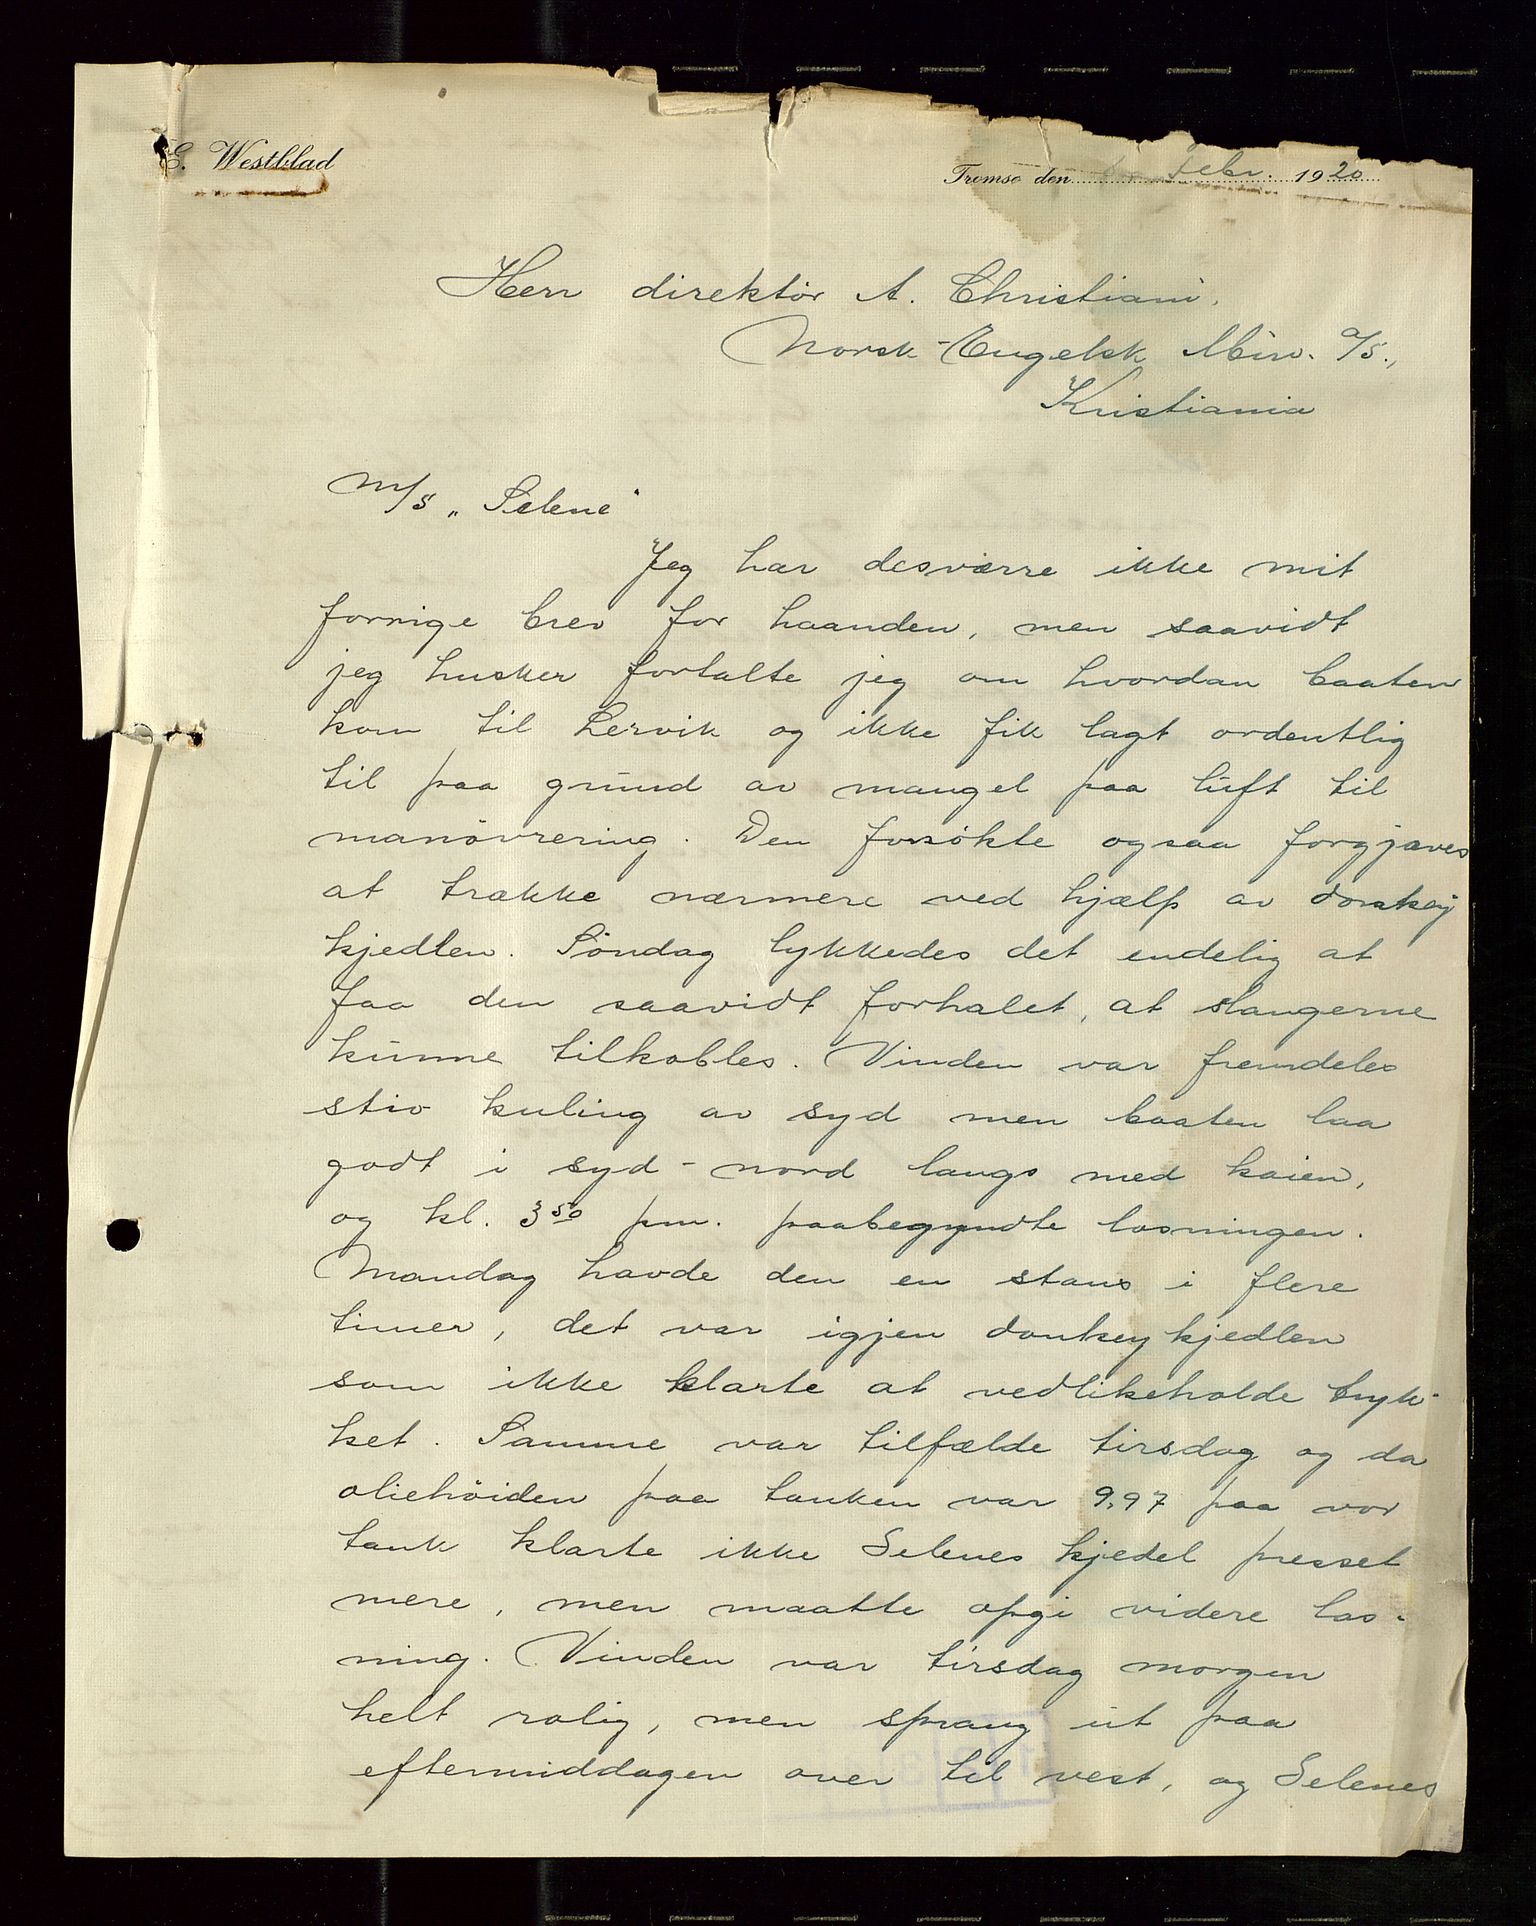 E. Westblad
Tromsø den Febr. 1920
Herr direktör A. Christiani,
Norsk-Engelsk Min. A/S.,
Kristiania
M/S „Selene"
Jeg har desværre ikke mit
forrige brev for haanden, men saavidt
jeg husker fortalte jeg om hvordan baaten
kom til Lervik og ikke fik lagt ordentlig
til paa grund av mangel paa luft til
manövrering. Den forsökte ogsaa forgjæves
at trække nærmere ved hjælp av donkey
kjedlen. Söndag lykkedes det endelig at
faa den saavidt forhalet, at slangerne
kunne tilkobles. Vinden var fremdeles
stiv kuling av syd men baaten laa
godt i syd-nord langs med kaien,
og kl. 3 50 pm. paabegyndte losningen.
Mandag havde den en stans i flere
timer, det var igjen donkeykjedlen
som ikke klarte at vedlikeholde tryk-
ket. Samme var tilfælde tirsdag og da
oliehöiden paa tanken var 9,97 paa vor
tank klarte ikke Selenes kjedel presset
mere, men maatte opgi videre los-
ning. Vinden var tirsdag morgen
helt rolig, men sprang ut paa
eftermiddagen over til vest, og Selenes